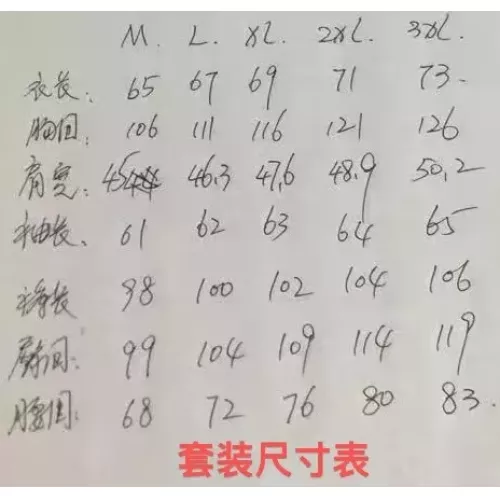 M. L. XL. 2XL. 3XL.
衣长: 65 67 69 71 73
胸围: 106 111 116 121 126
肩宽: 45 46.3 47.6 48.9 50.2
袖长. 61 62 63 64 65
裤长 98 100 102 104 106
臀围: 99 104 109 114 119
腰围: 68 72 76 80 83
套装尺寸表